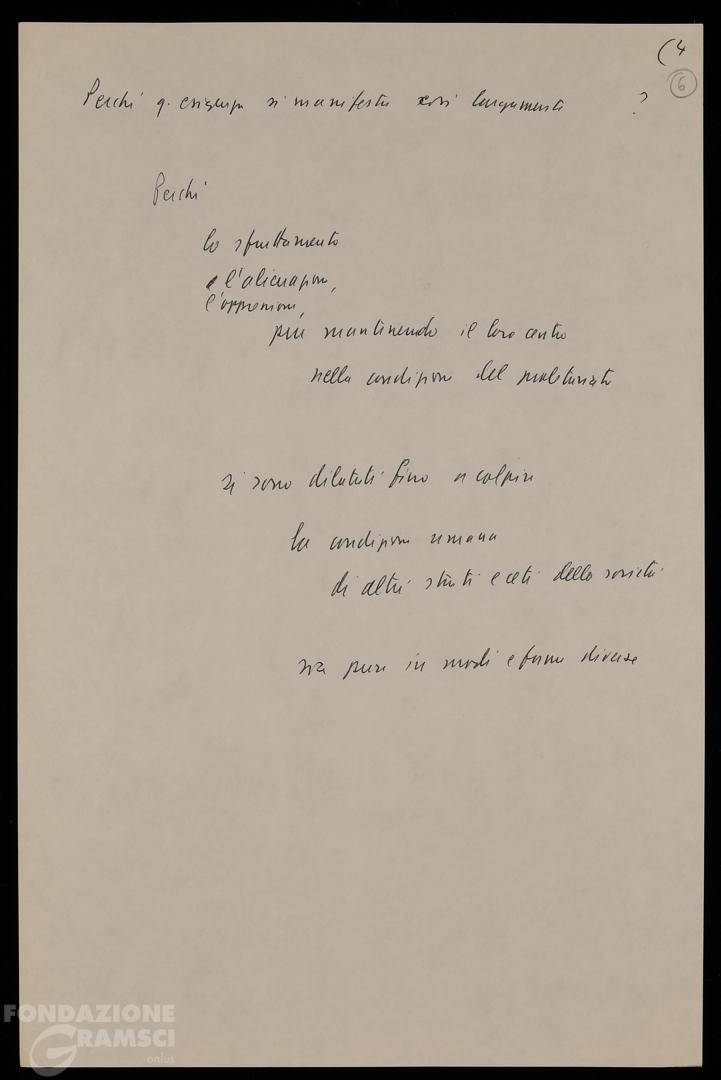 (4
6
Perché q. esigenza si manifesta così largamente ?
Perché
lo sfruttamento
e l'alienazione,
l'oppressione,
pur mantenendo il loro centro
nella condizione del proletariato
si sono dilatati fino a colpire
la condizione umana
di altri strati e ceti della società
sia pure in modi e forme diverse
FONDAZIONE
GRAMSCI
onlus